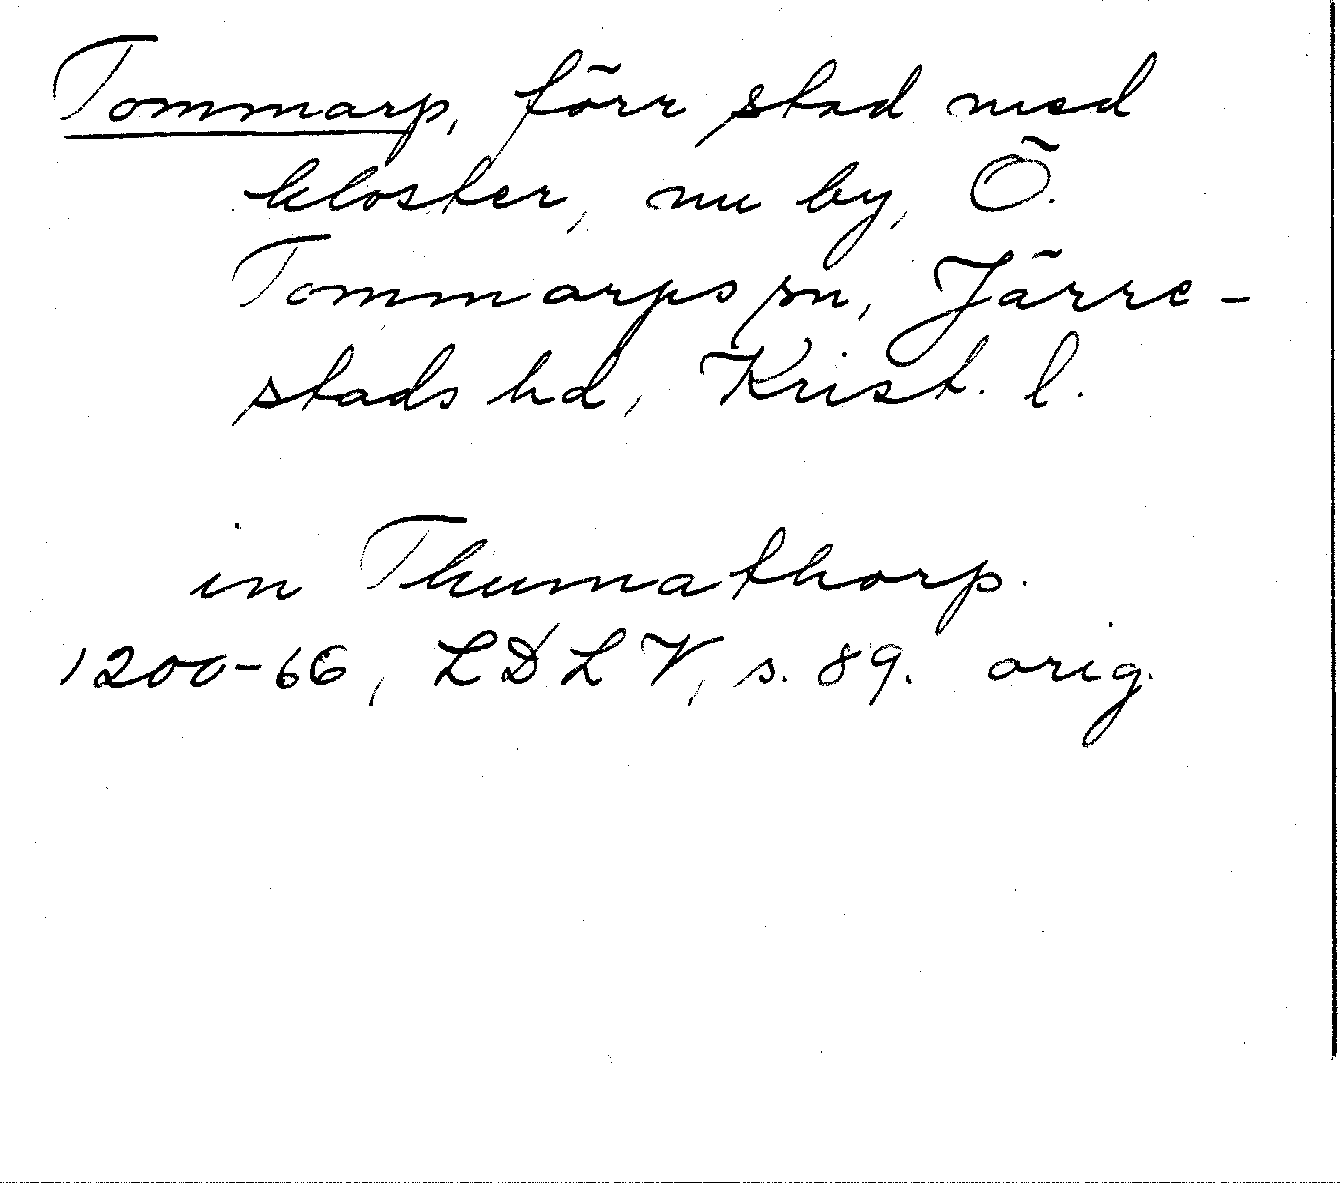 Tommarp, förr stad med
kloster, nu by, Ö.
Tommarps sn, Järre-
stads hd, Krist. l.
in Thumathorp.
1200-66, LDLV, s. 89. orig.